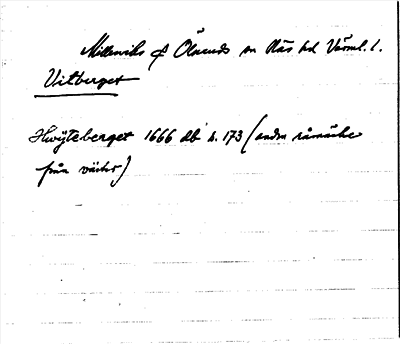 Millesviks o Ölseruds sn Näs hd Värml. l.
Vitberget
Hwÿteberget 1666 db s. 173 (andra råmärke
från väster)